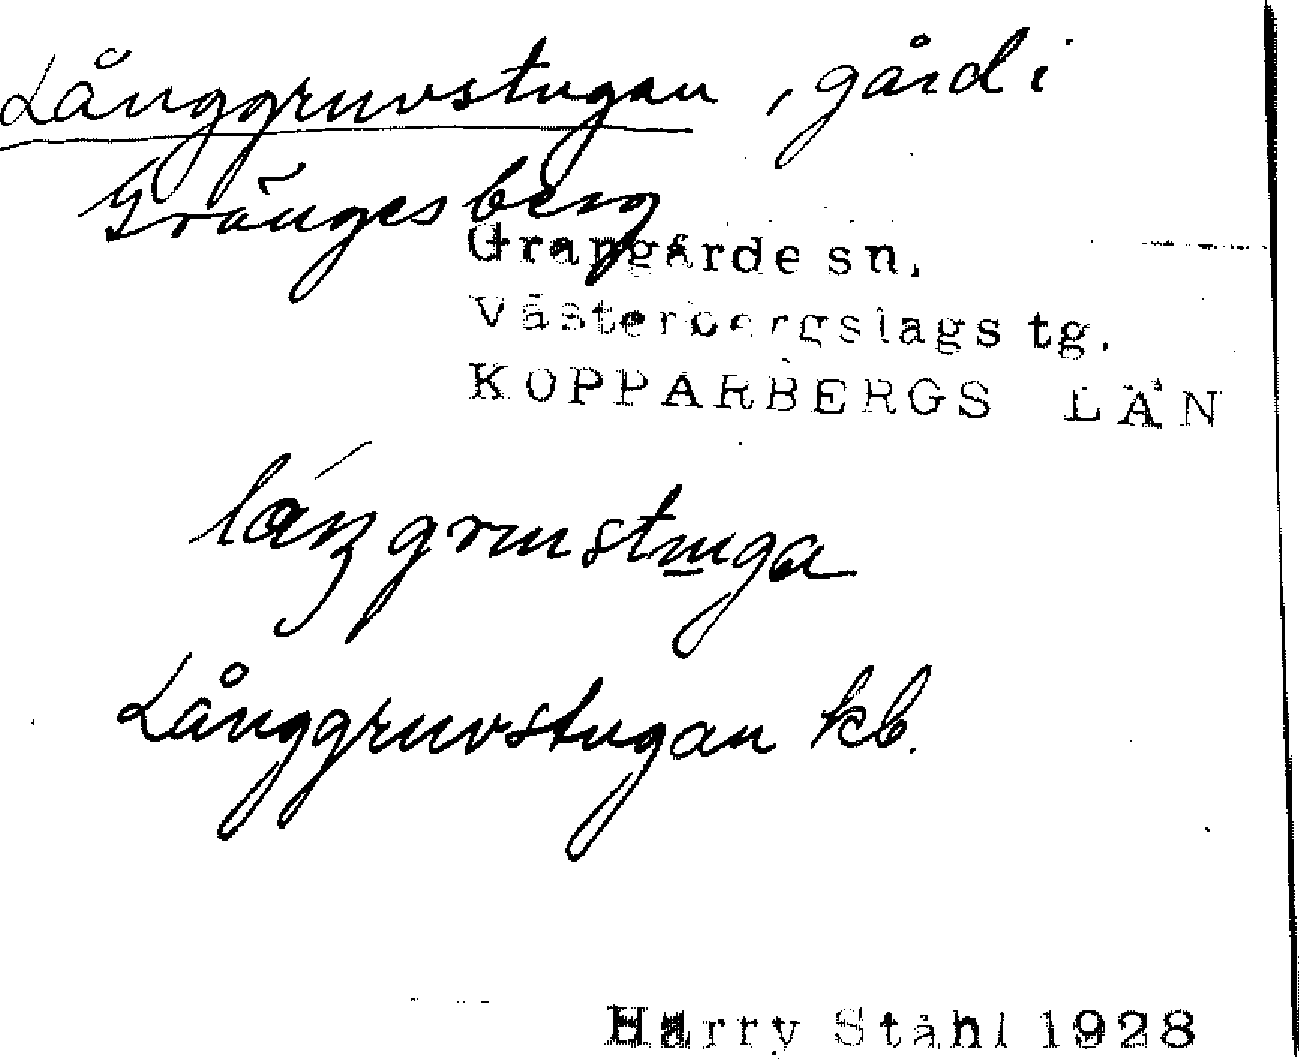 Långgruvstugan, gård i
Grängesberg
Grangärde sn.
Västerbergslags tg.
KOPPARBERGS LÄN
Långgruvstugan kb.
Harry Ståhl 1928